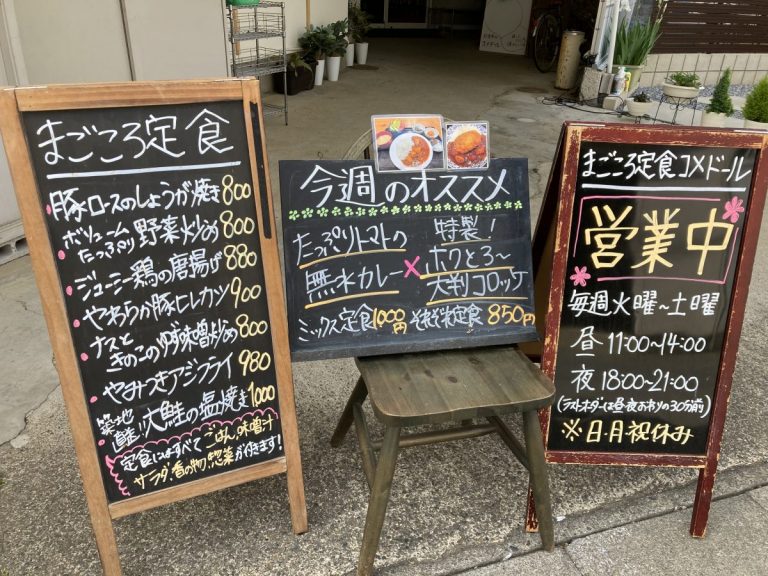 まごころ定食
豚ロースのしょうが焼き 800
ボリュームたっぷり 野菜炒め 800
ジューシー鶏の唐揚げ 880
やわらか豚ヒレカツ 900
ナスときのこのゆず味噌炒め 800
やみつきアジフライ 980
築地直送!! 大鮭の塩焼き 1000
定食にはすべてごはん、味噌汁
サラダ、香の物、惣菜が付きます!
今週のオススメ
たっぷりトマトの
無水カレー
×
特製!
ホクとろ~
大判コロッケ
ミックス定食1000円 それぞれ定食850円
まごころ定食コメドール
営業中
毎週火曜~土曜
昼 11:00~14:00
夜 18:00~21:00
(ラストオーダーは昼夜おわりの30分前)
※日・月・祝休み